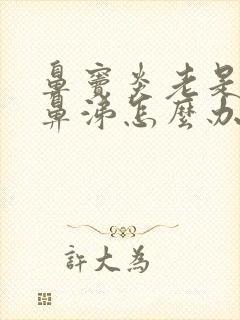 鼻竇炎老是
鼻涕怎麼办
許大為